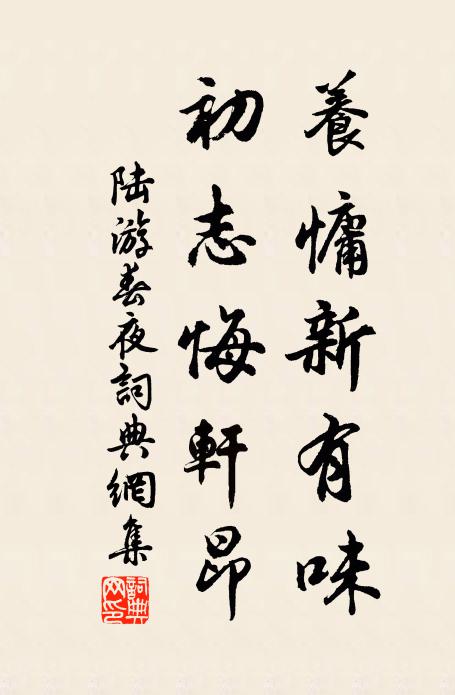 養慵新有味
初志悔軒昂
陆游春夜詞典網集
詞典网印